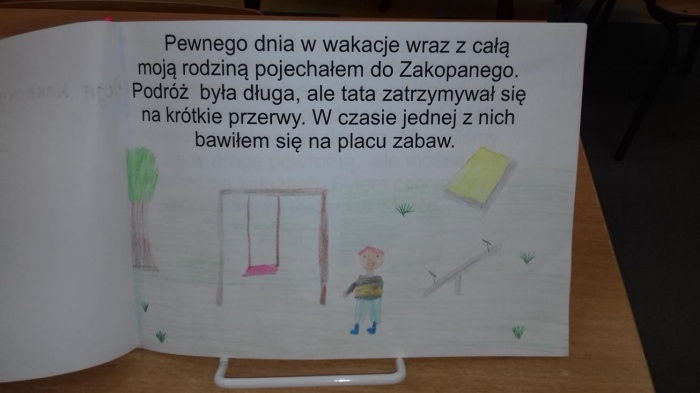 Pewnego dnia w wakacje wraz z całą
moją rodziną pojechałem do Zakopanego.
Podróż była długa, ale tata zatrzymywał się
na krótkie przerwy. W czasie jednej z nich
bawiłem się na placu zabaw.